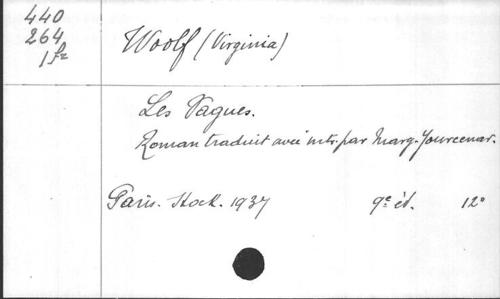 440
264
1 fr
Woolf (Virginia)
Les Vagues.
Roman traduit avec intr. par Marg. Yourcenar.
Paris. Stock. 1937 9e éd. 12°